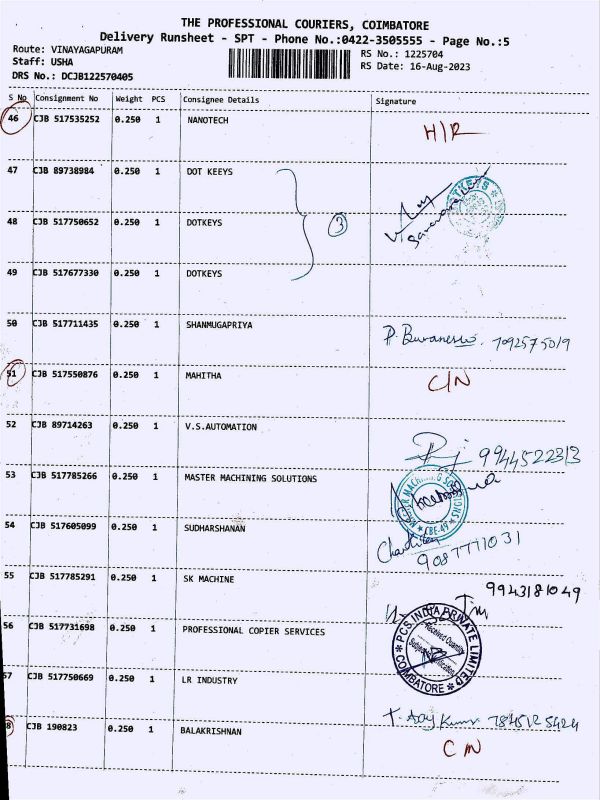 THE PROFESSIONAL COURIERS, COIMBATORE
Delivery Runsheet - SPT - Phone No.:0422-3505555 - Page No.:5
Route: VINAYAGAPURAM RS No.: 1225704
Staff: USHA RS Date: 16-Aug-2023
DRS No.: DCJB122570405
S No Consignment No Weight PCS Consignee Details Signature
46 CJB 517535252 0.250 1 NANOTECH
47 CJB 89738984 0.250 1 DOT KEEYS
48 CJB 517750652 0.250 1 DOTKEYS 3
49 CJB 517677330 0.250 1 DOTKEYS
50 CJB 517711435 0.250 1 SHANMUGAPRIYA
51 CJB 517550876 0.250 1 MAHITHA C/N
52 CJB 89714263 0.250 1 V.S.AUTOMATION
9944522313
53 CJB 517785266 0.250 1 MASTER MACHINING SOLUTIONS
54 CJB 517605099 0.250 1 SUDHARSHANAN
9087771031
55 CJB 517785291 0.250 1 SK MACHINE 9943181049
56 CJB 517731698 0.250 1 PROFESSIONAL COPIER SERVICES
PCS INDIA PRIVATE LIMITED
COIMBATORE
57 CJB 517750669 0.250 1 LR INDUSTRY
8 CJB 190823 0.250 1 BALAKRISHNAN